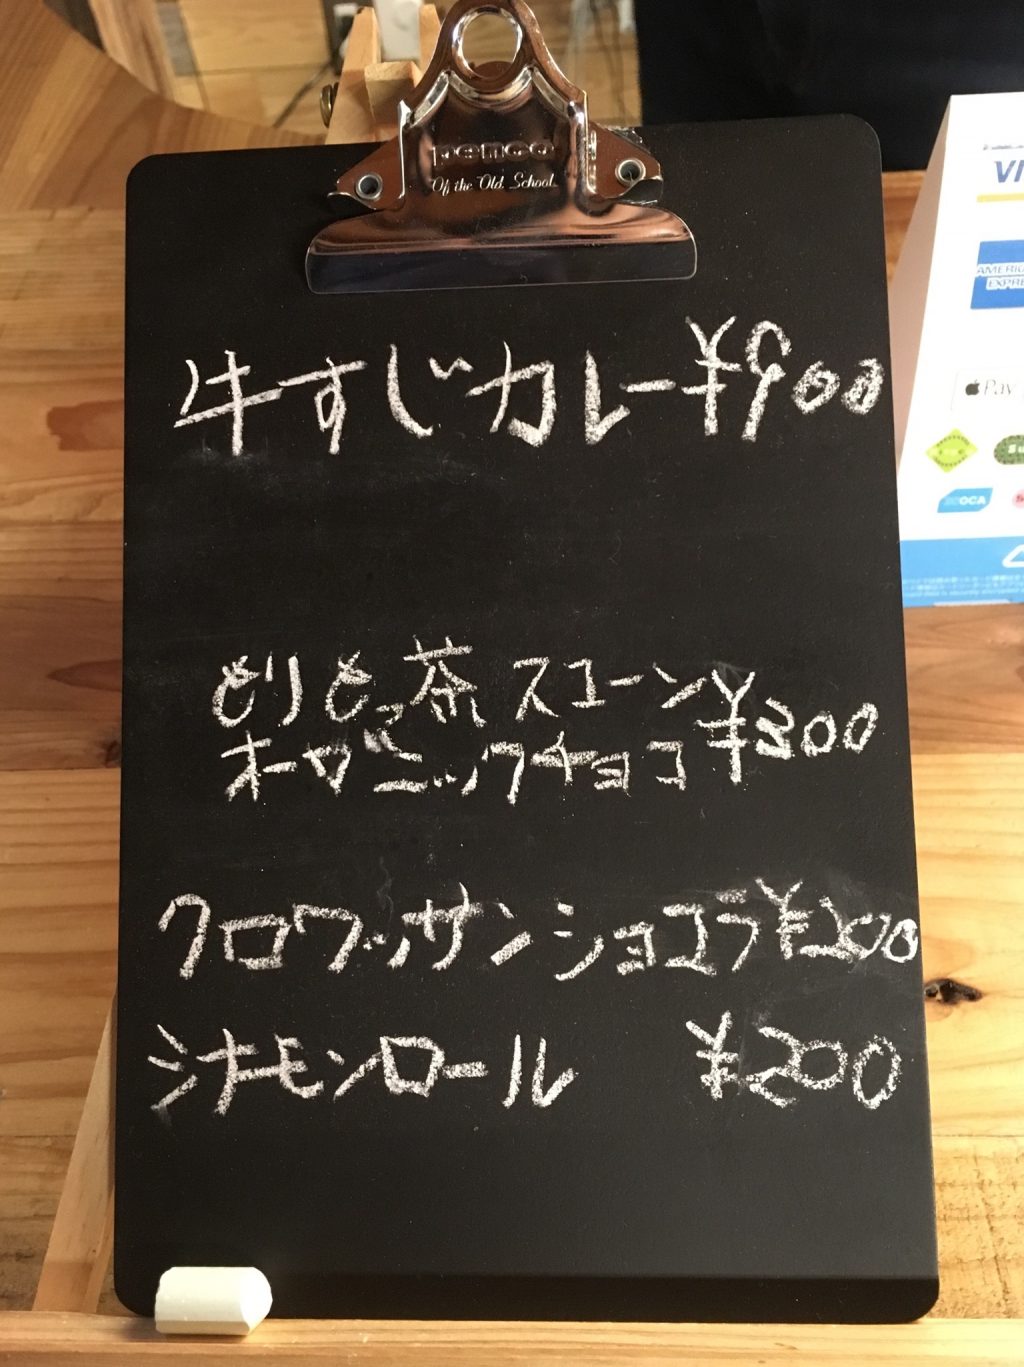 penco
Of the Old School
牛すじカレー¥900
もりもっ茶 スコーン
オーガニックチョコ ¥300
クロワッサンショコラ¥200
シナモンロール ¥200
VI
AMERI
EXPRE
Pay